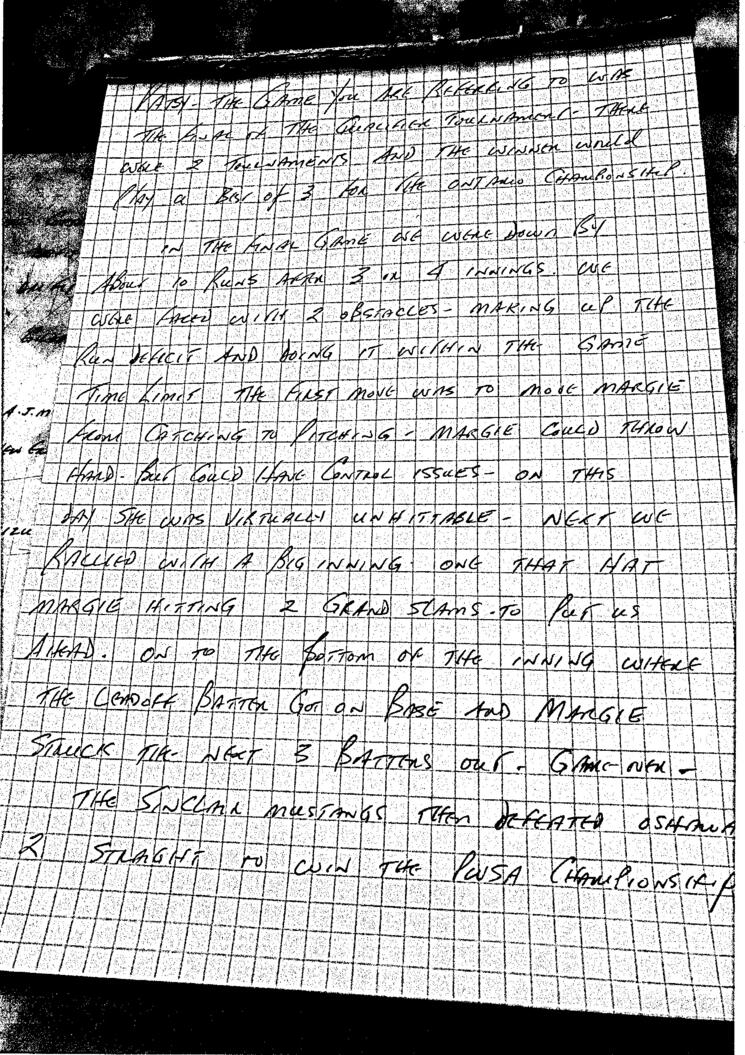 PATSY - THE GAME YOU ARE REFERRING TO WAS
THE FINAL OF THE QUALIFIER TOURNAMENT - THERE
WERE 2 TOURNAMENTS - AND THE WINNER WOULD
PLAY a BEST OF 3 FOR THE ONTARIO CHAMPIONSHIP.
IN THE FINAL GAME WE WERE DOWN BY
ABOUT 10 RUNS AFTER 3 OR 4 INNINGS. WE
WERE FACED WITH 2 OBSTACLES - MAKING UP THE
RUN DEFICIT AND DOING IT WITHIN THE GAME
TIME LIMIT THE FIRST MOVE WAS TO MOVE MARGIE
FROM CATCHING TO PITCHING - MARGIE COULD THROW
HARD - BUT COULD HAVE CONTROL ISSUES - ON THIS
DAY SHE WAS VIRTUALLY UNHITTABLE - NEXT WE
RALLIED WITH A BIG INNING - ONE THAT HAT
MARGIE HITTING 2 GRAND SLAMS - TO PUT US
AHEAD. ON TO THE BOTTOM OF THE INNING WHERE
THE LEADOFF BATTER GOT ON BASE AND MARGIE
STRUCK THE NEXT 3 BATTERS OUT - GAME OVER -
THE SINCLAIR MUSTANGS THEN DEFEATED OSHAWA
2 STRAIGHT TO WIN THE PWSA CHAMPIONSHIP
A.J.M
12U